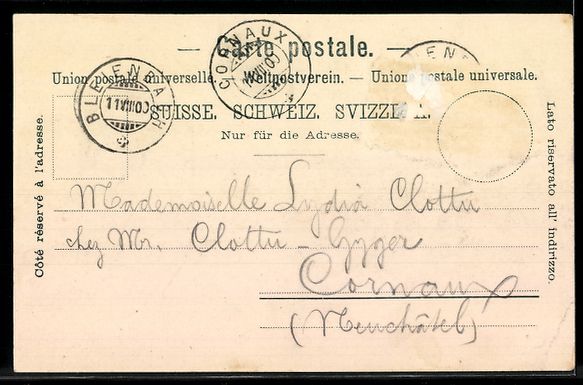 — Carte postale. —
Union postale universelle. — Weltpostverein. — Unione postale universale.
SUISSE. SCHWEIZ. SVIZZE A.
Nur für die Adresse.
Côté réservé à l'adresse.
Lato riservato all' indirizzo.
BLEIENBACH
11 VIII 00
CORNAUX
VIII 00
Mademoiselle Lydia Clottu
chez Mr. Clottu - Gyger
Cornaux
(Neuchâtel)